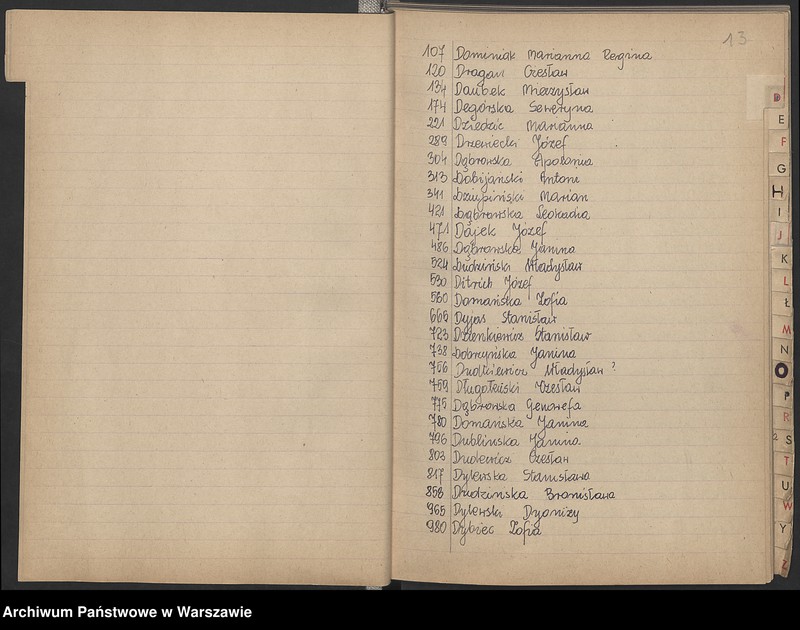 13
107 Dominiak Marianna Regina
120 Dragan Czesław
134 Daubek Mieczysław
174 Degórska Seweryna
221 Dziedzic Marianna
289 Drzewiecki Józef
304 Dąbrowska Apolonia
313 Dobijański Antoni
341 Marian
421 Dąbrowska Leokadia
471 Dajek Józef
486 Dąbrowska Janina
524 Dudziński Władysław
530 Ditrich Józef
560 Domańska Zofia
665 Dyjas Stanisław
723 Dzienkiewicz Stanisław
738 Dobrzyńska Janina
756 Dudkiewicz Władysław ?
759 Czesław
775 Dąbrowska Genowefa
780 Domańska Janina
796 Dublińska Janina
803 Dudewicz Czesław
817 Dylewska Stanisława
858 Drudzińska Bronisława
965 Dylewski Dyonizy
980 Dybiec Zofia
D
E
F
G
H
I
J
K
L
Ł
M
N
O
P
R
S
T
U
W
Y
Z
Archiwum Państwowe w Warszawie